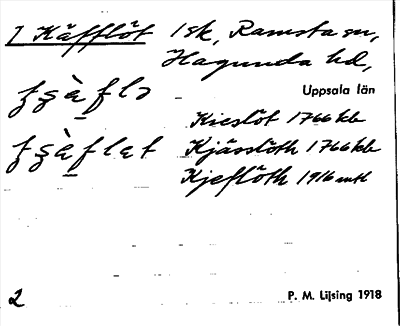 1 Käfflöt 1 sk, Ramsta sn,
Hagunda hd,
Uppsala län
Kieslöt 1766 kb
Kjässlöth 1766 kb
Kjeflöth 1916 mtl
2
P. M. Lijsing 1918